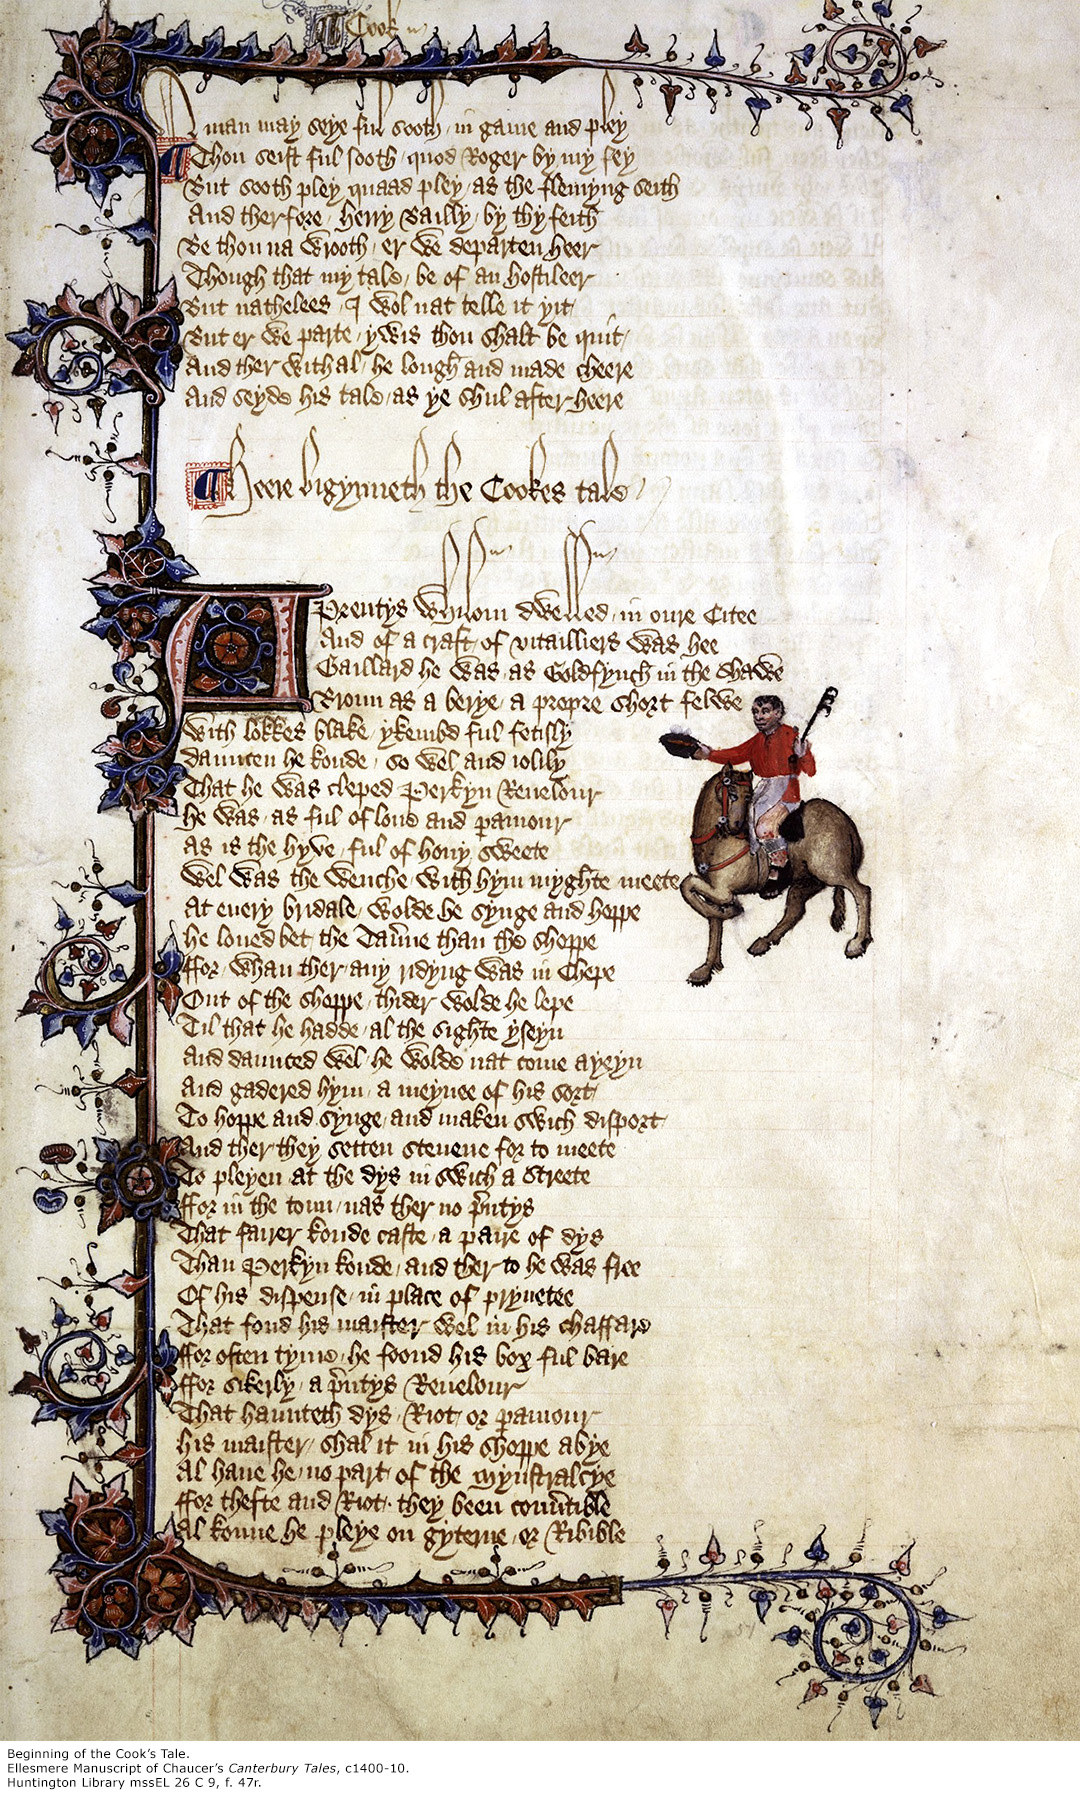 ¶ Cook
A man may seye ful sooth in game and pley
¶ Thou seist ful sooth quod Roger by my fey
But sooth pley quaad pley as the flemyng seith
And therfore Herry Bailly by thy feith
Be thou nat wrooth er we departen heer
Though that my tale be of an hostileer
But nathelees I wol nat telle it yit
But er we parte ywis thou shalt be quit
And ther with al he lough and made cheere
And seyde his tale as ye shul after heere
¶ Heere bigynneth the Cookes tale
A Prentys whilom dwelled in oure Citee
And of a craft of vitailliers was hee
Gaillard he was as Goldfynch in the shawe
Broun as a berye a propre short felwe
With lokkes blake ykembd ful fetisly
Dauncen he koude so wel and iolily
That he was cleped Perkyn Reuelour
He was as ful of loue and paramour
As is the hyve ful of hony sweete
Wel was the wenche with hym myghte meete
At euery bridale wolde he synge and hoppe
He loued bet the Tauͬne than the shoppe
ffor whan ther any ridyng was in Chepe
Out of the shoppe thider wolde he lepe
Til that he hadde al the sighte yseyn
And daunced wel he wolde nat come ayeyn
And gadered hym a meynee of his sort
To hoppe and synge and maken swich disport
And ther they setten steuene for to meete
To pleyen at the dys in swich a Streete
ffor in the toun nas ther no prentys
That fairer koude caste a paire of dys
Than Perkyn koude and ther to he was free
Of his dispense in place of pryuetee
That fond his maister wel in his chaffare
ffor often tyme he foond his box ful bare
ffor sikerly a prentys Reuelour
That haunteth dys Riot or paramour
His maister shal it in his shoppe abye
Al haue he no part of the mynstralcye
ffor thefte and Riot they been conuertible
Al konne he pleye on gyterne or Ribible
Beginning of the Cook's Tale.
Ellesmere Manuscript of Chaucer's Canterbury Tales, c1400-10.
Huntington Library mssEL 26 C 9, f. 47r.